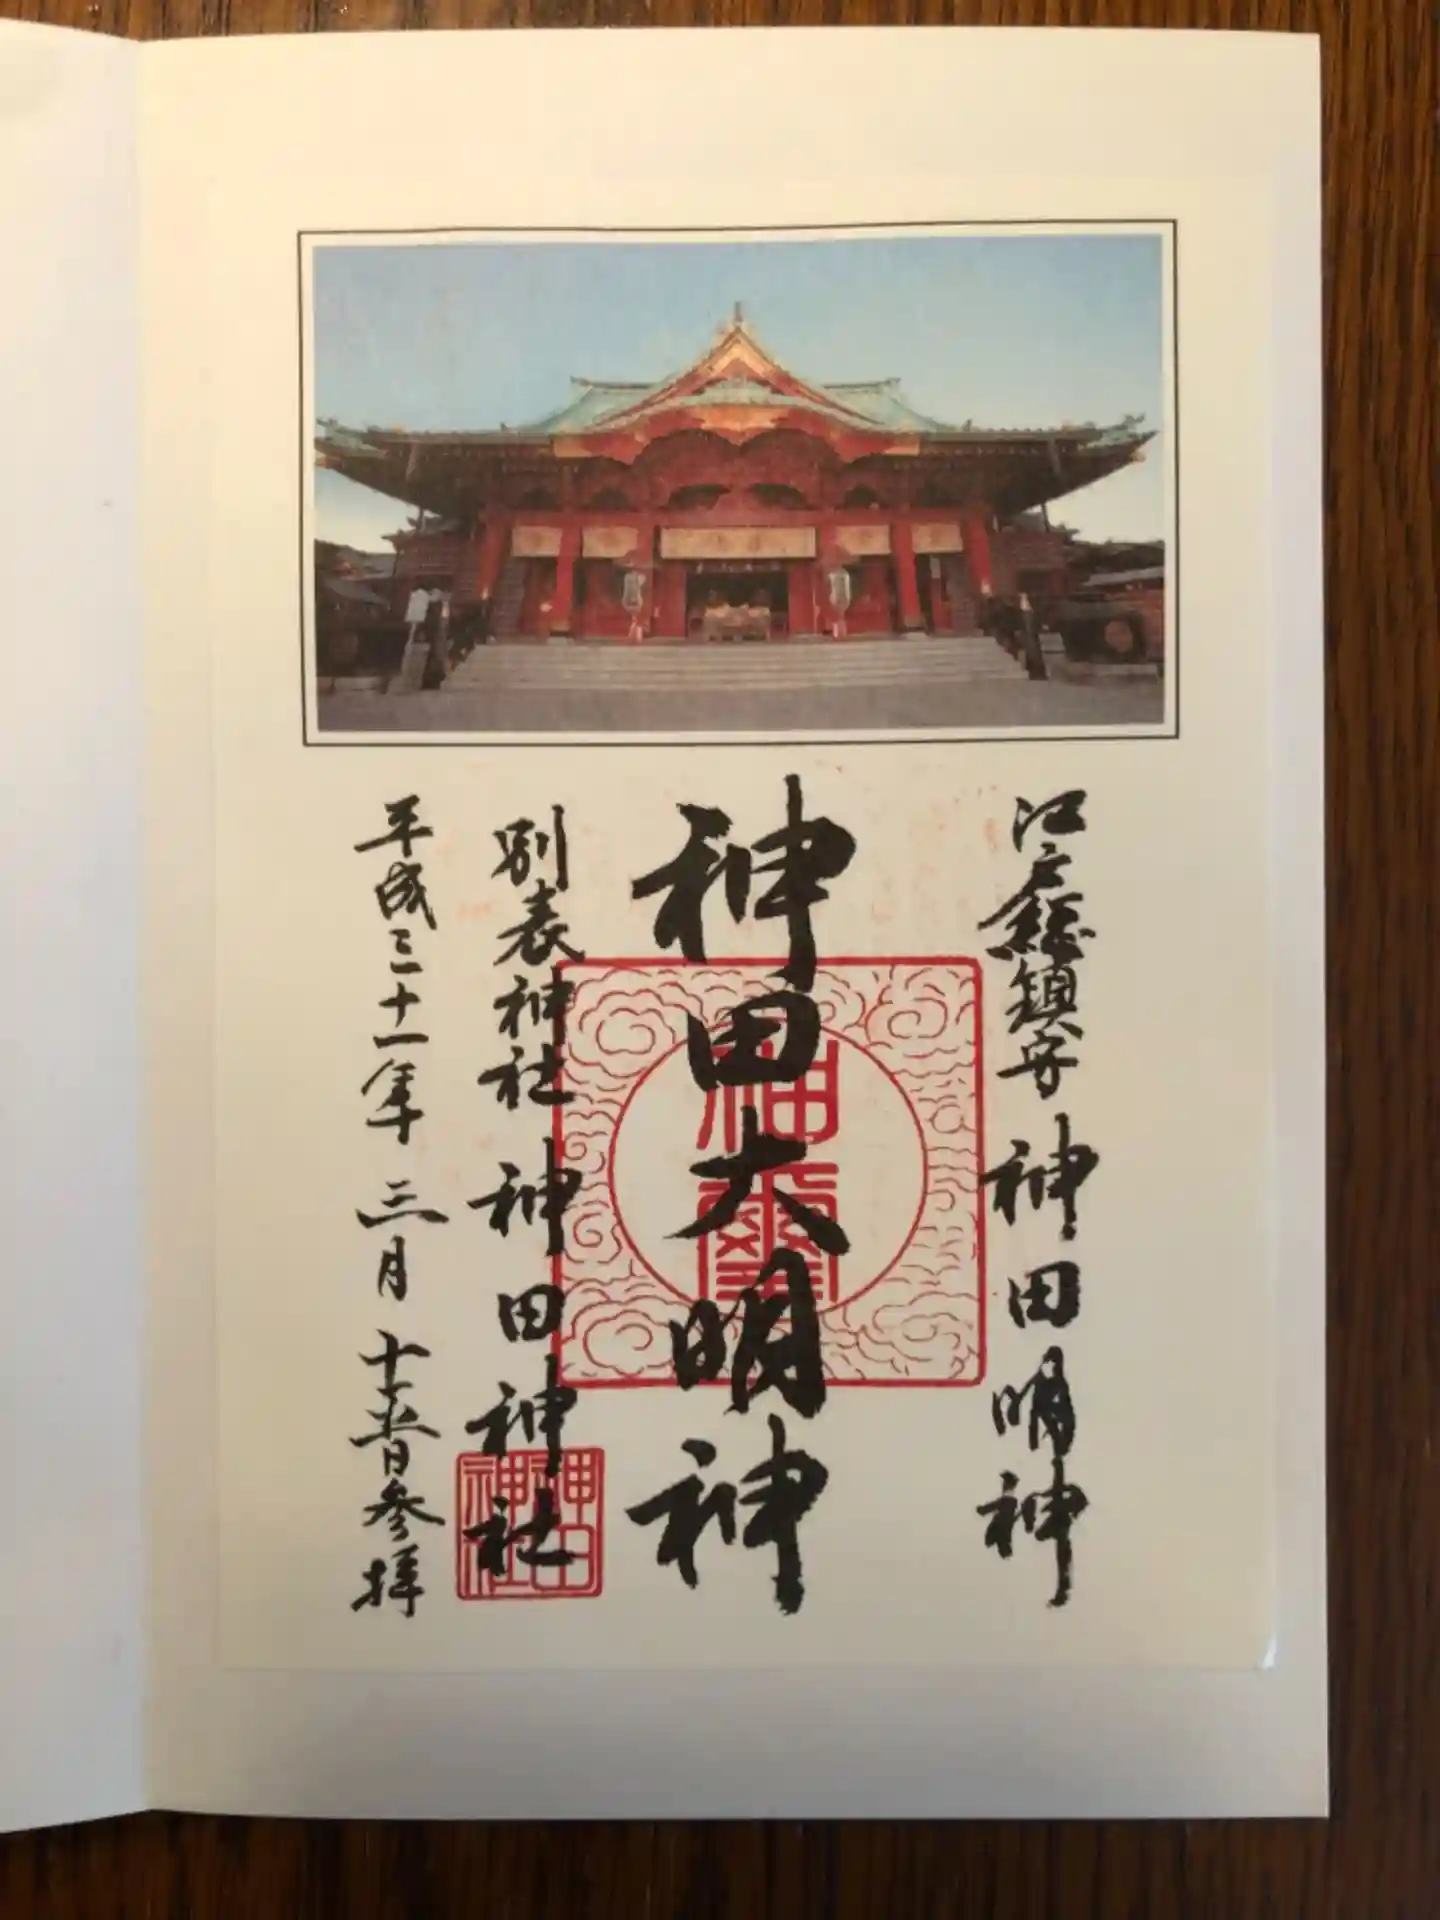 江戸総鎮守 神田明神
神田大明神
神璽
別表神社 神田神社
神田神社
平成三十一年 三月 十 日参拝